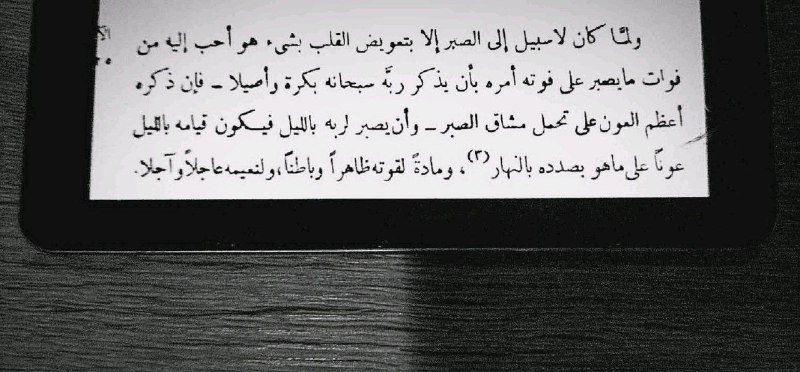 ولمَّا كان لا سبيل إلى الصبر إلا بتعويض القلب بشيء هو أحب إليه من
فوات ما يصبر على فوته أمره بأن يذكر ربَّه سبحانه بكرة وأصيلا – فإن ذكره
أعظم العون على تحمل مشاق الصبر – وأن يصبر لربه بالليل فيكون قيامه بالليل
عونًا على ما هو بصدده بالنهار (٣)، ومادةً لقوته ظاهراً وباطناً، ولنعيمه عاجلاً وآجلا.